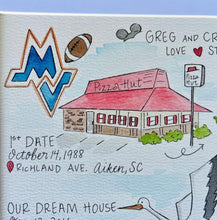 GREG AND CR
LOVE ST
MV
Pizza Hut
Pizza Hut
1ST DATE
October 14, 1988
RICHLAND AVE. Aiken, SC
OUR DREAM HOUSE